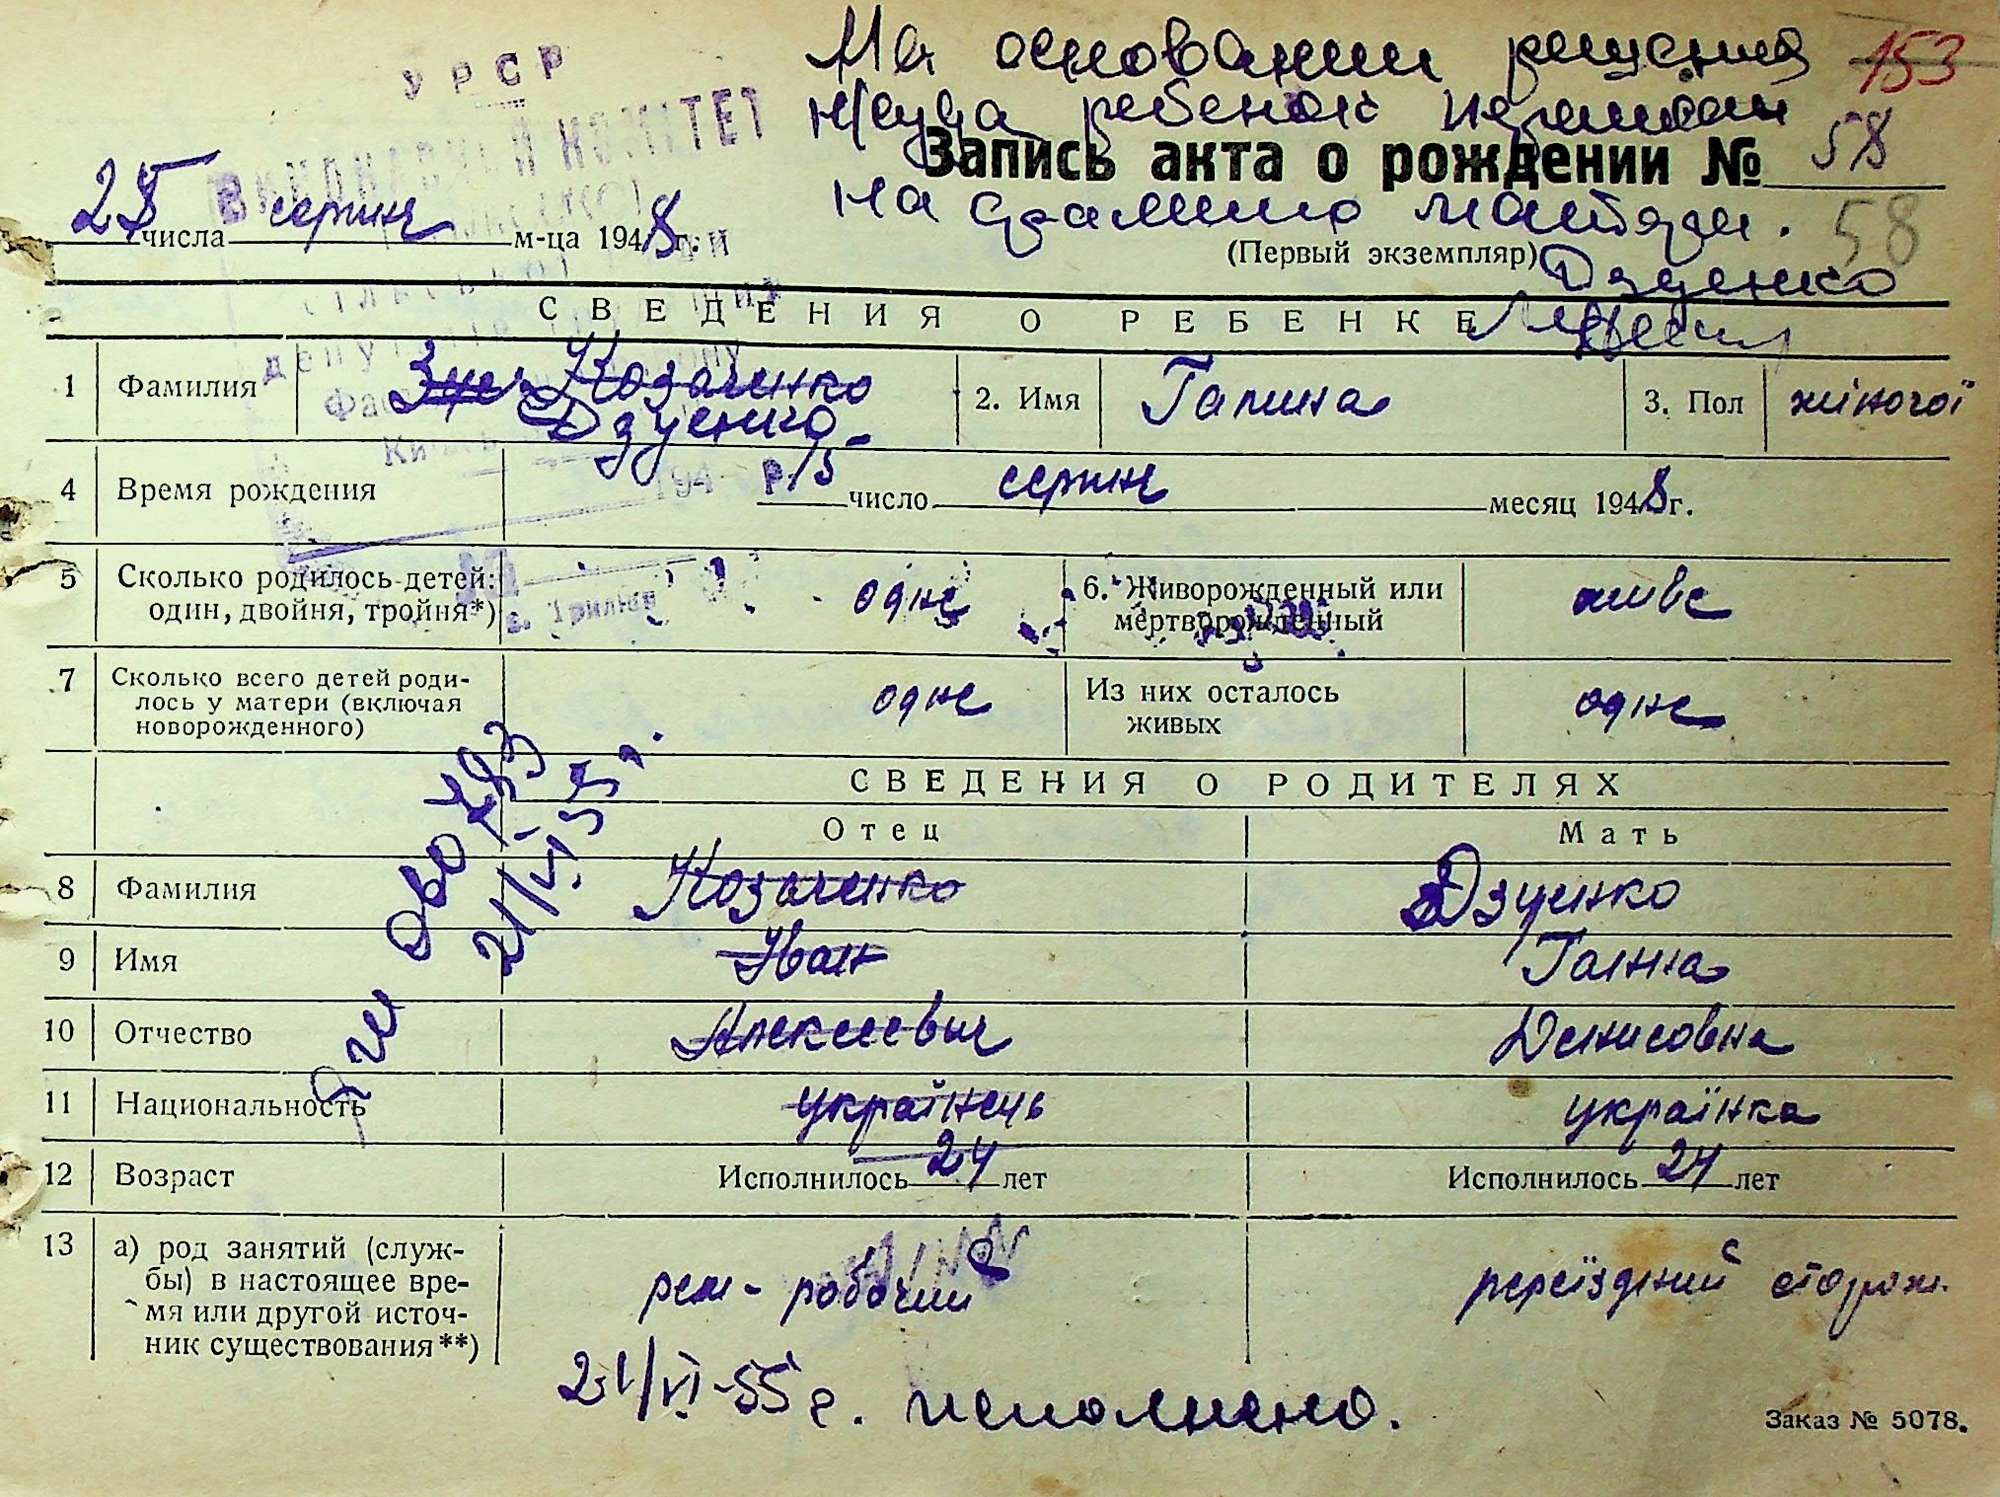 На основании решения 153
н/суда ребенок записан
УРСР
ВИКОНАВЧИЙ КОМІТЕТ
Запись акта о рождении № 58
на фамилию матери.
25 числа серпня м-ца 1948 г.
(Первый экземпляр) 58
Дзуенко
СВЕДЕНИЯ О РЕБЕНКЕ
1 Фамилия Козаченко 2. Имя Галина 3. Пол жіночої
Дзуенко
4 Время рождения 15 число серпня месяц 1948 г.
5 Сколько родилось детей: один, двойня, тройня*) одне 6. Живорожденный или мертворожденный живе
7 Сколько всего детей родилось у матери (включая новорожденного) одне Из них осталось живых одне
СВЕДЕНИЯ О РОДИТЕЛЯХ
Отец Мать
8 Фамилия Козаченко Дзуенко
9 Имя Иван Ганна
10 Отчество Алексеевич Денисовна
11 Национальность українець українка
12 Возраст Исполнилось 24 лет Исполнилось 24 лет
13 а) род занятий (службы) в настоящее время или другой источник существования**) рем-робочий переїздний сторож
21/VI 55 г.
21/VI-55 г. исполнено.
Заказ № 5078.